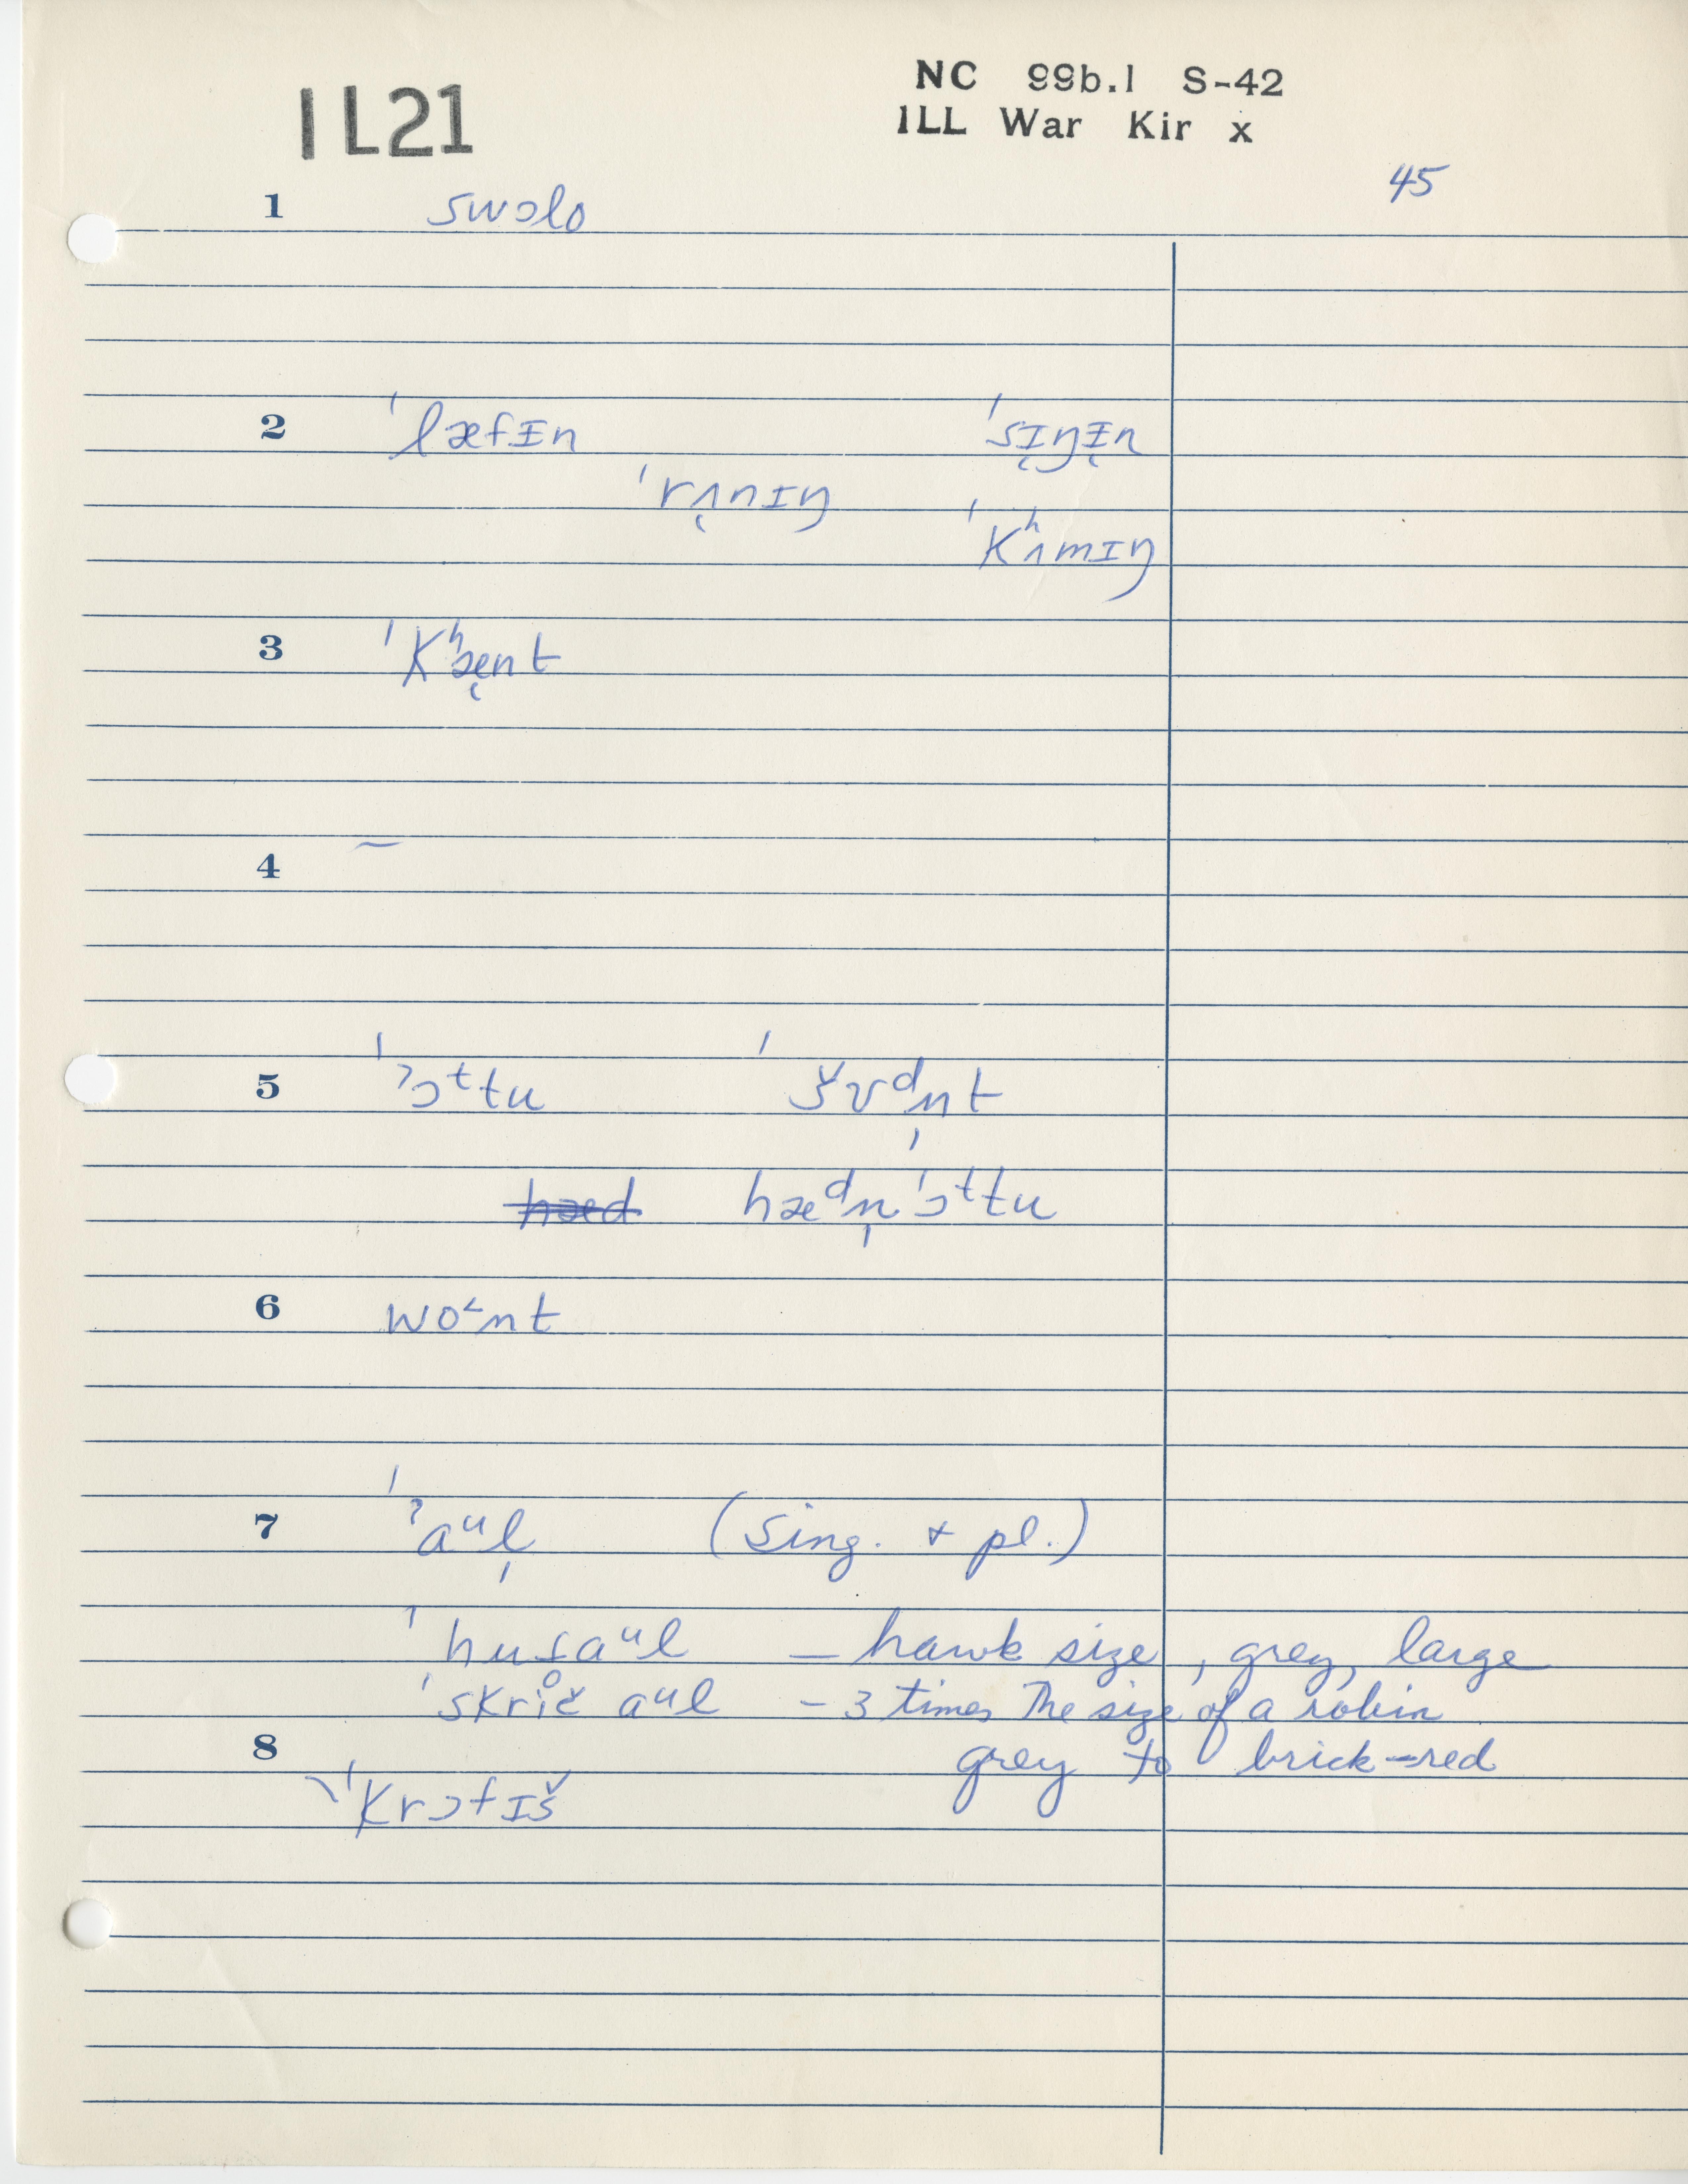 1L21
NC 99b.1 S-42
1LL War Kir x
45
1 swɔlo
2 ˈlæfɪn ˈsɪ̜ŋɪ̜n
ˈrʌ̜nɪŋ
ˈkʰʌmɪŋ
3 ˈkʰæ̜nt
4 ~
5 ˈʔɔᵗtu ˈšʊᵈn̩t
hæd hæᵈn̩ˈɔᵗtu
6 wo˂nt
7 ˈʔaᵘl̩ (sing. + pl.)
ˈhutaᵘl — hawk size, grey, large
ˈskrič aᵘl – 3 times the size of a robin
grey to brick-red
8 ˈkrɔfɪš